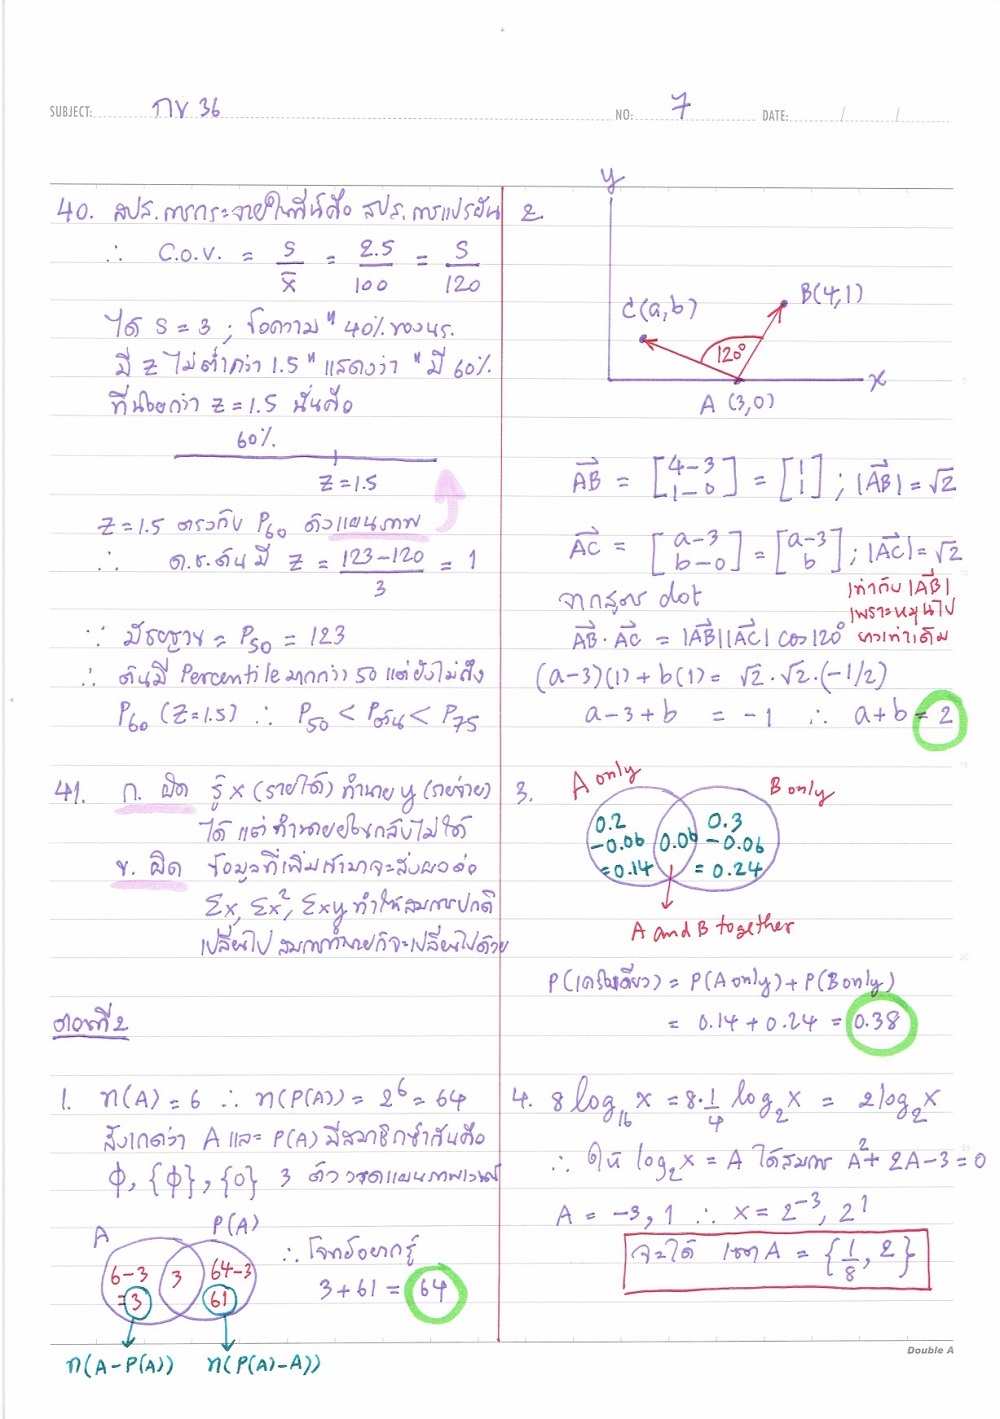 SUBJECT: กข 36 NO: 7 DATE: / /
40. สปส. การกระจายในที่นี้คือ สปส. การแปรผัน
∴ C.O.V. = S/x̄ = 2.5/100 = S/120
ได้ S = 3 ; ข้อความ " 40% ของนร.
มี Z ไม่ต่ำกว่า 1.5 " แสดงว่า " มี 60%
ที่น้อยกว่า Z = 1.5 นั่นคือ
60%
Z = 1.5
Z = 1.5 ตรงกับ P60 ดังแผนภาพ
∴ ด.ช.ต้น มี Z = (123-120)/3 = 1
∵ มัธยฐาน = P50 = 123
∴ ต้นมี Percentile มากกว่า 50 แต่ยังไม่ถึง
P60 (Z=1.5) ∴ P50 < Pต้น < P75
41. ก. ผิด รู้ x (รายได้) ทำนาย y (รายจ่าย)
ได้ แต่ทำนายย้อนกลับไม่ได้
ข. ผิด ข้อมูลที่เพิ่มเข้ามาจะส่งผลต่อ
Σx, Σx², Σxy ทำให้สมการปกติ
เปลี่ยนไป สมการทำนายก็จะเปลี่ยนไปด้วย
ตอนที่ 2
1. n(A) = 6 ∴ n(P(A)) = 2⁶ = 64
สังเกตว่า A และ P(A) มีสมาชิกซ้ำกันคือ
Φ, {Φ}, {0} 3 ตัว วาดแผนภาพเวนน์
A P(A)
6-3 3 64-3
=3 61
n(A-P(A)) n(P(A)-A))
∴ โจทย์อยากรู้
3 + 61 = 64
2.
y
C(a,b) B(4,1)
120°
x
A (3,0)
AB⃗ = [4-3 1-0] = [1 1] ; |AB⃗| = √2
AC⃗ = [a-3 b-0] = [a-3 b] ; |AC⃗| = √2
เท่ากับ |AB⃗|
เพราะหมุนไป
ยาวเท่าเดิม
จากสูตร dot
AB⃗·AC⃗ = |AB⃗||AC⃗| cos120°
(a-3)(1) + b(1) = √2·√2·(-1/2)
a-3+b = -1 ∴ a+b = 2
3.
A only B only
0.2 0.3
-0.06 0.06 -0.06
=0.14 = 0.24
A and B together
P(เครื่องเดียว) = P(A only) + P(B only)
= 0.14 + 0.24 = 0.38
4. 8 log₁₆ x = 8·1/4 log₂x = 2log₂x
∴ ให้ log₂x = A ได้สมการ A² + 2A - 3 = 0
A = -3, 1 ∴ x = 2⁻³, 2¹
จะได้ เซต A = {1/8, 2}
Double A